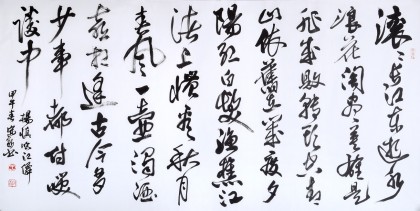 滚々长江东逝水
浪花淘尽英雄是
非成败转头空青
山依旧在几度夕
陽红白发渔樵江
渚上惯看秋月
春风一壶浊酒
喜相逢古今多
少事都付笑
谈中
杨慎临江仙
甲午春